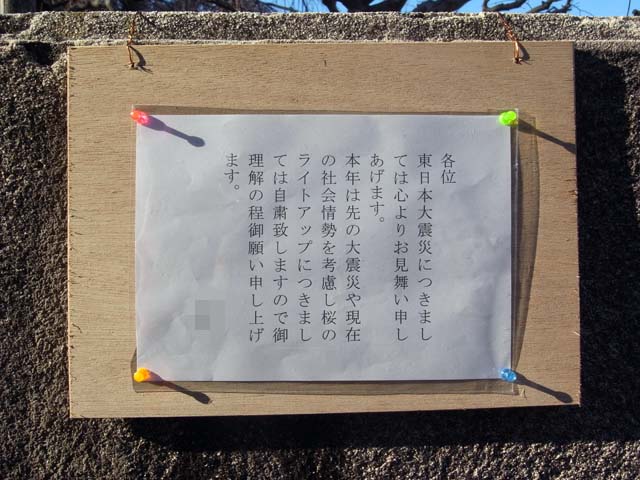 各位
東日本大震災につきまし
ては心よりお見舞い申し
あげます。
本年は先の大震災や現在
の社会情勢を考慮し桜の
ライトアップにつきまし
ては自粛致しますので御
理解の程御願い申し上げ
ます。